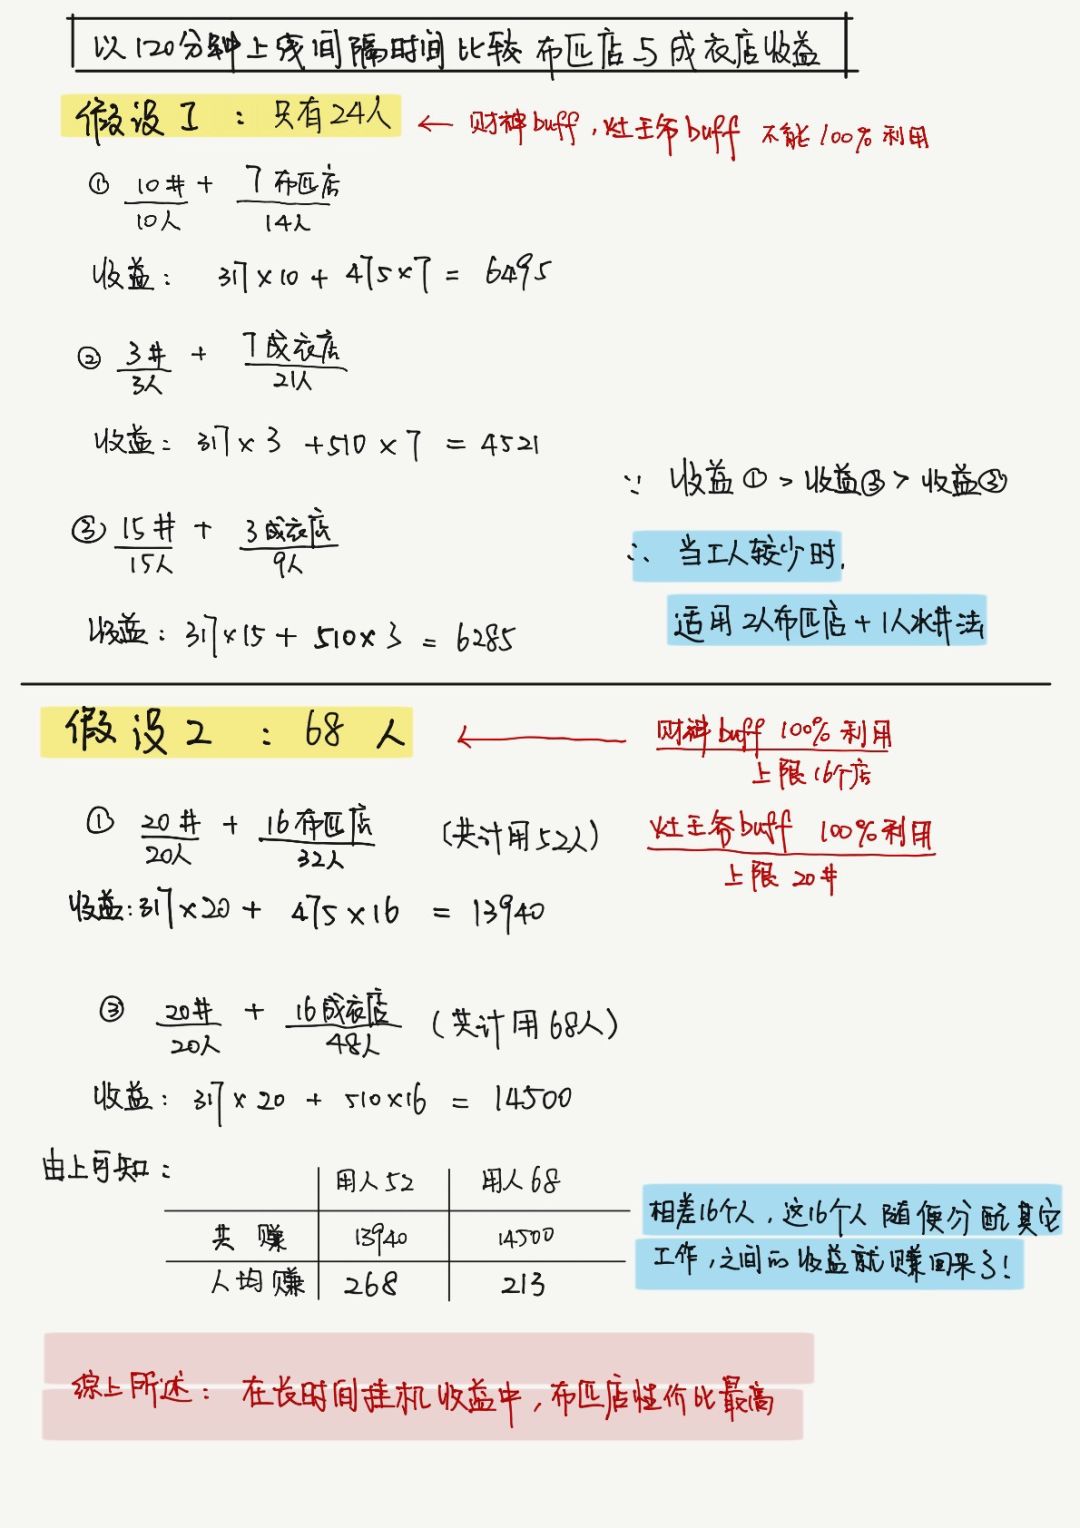 以120分钟上线间隔时间比较布匹店与成衣店收益
假设1：只有24人 ← 财神buff，灶王爷buff 不能100%利用
① 10井 + 7布匹店
10人 14人
收益： 317×10 + 475×7 = 6495
② 3井 + 7成衣店
3人 21人
收益： 317×3 +510×7 = 4521
③ 15井 + 3成衣店
15人 9人
收益：317×15 + 510×3 = 6285
∵ 收益① > 收益③ > 收益②
∴ 当工人较少时，
适用2人布匹店+1人水井法
假设2：68人 ← 财神buff 100%利用
上限16个店
① 20井 + 16布匹店 （共计用52人）
20人 32人
灶王爷buff 100%利用
上限 20井
收益：317×20 + 475×16 = 13940
③ 20井 + 16成衣店 （共计用68人）
20人 48人
收益：317×20 + 510×16 = 14500
由上可知：
用人52 用人68
共赚 13940 14500
人均赚 268 213
相差16个人，这16个人随便分配其它
工作，之间的收益就赚回来了！
综上所述：在长时间挂机收益中，布匹店性价比最高